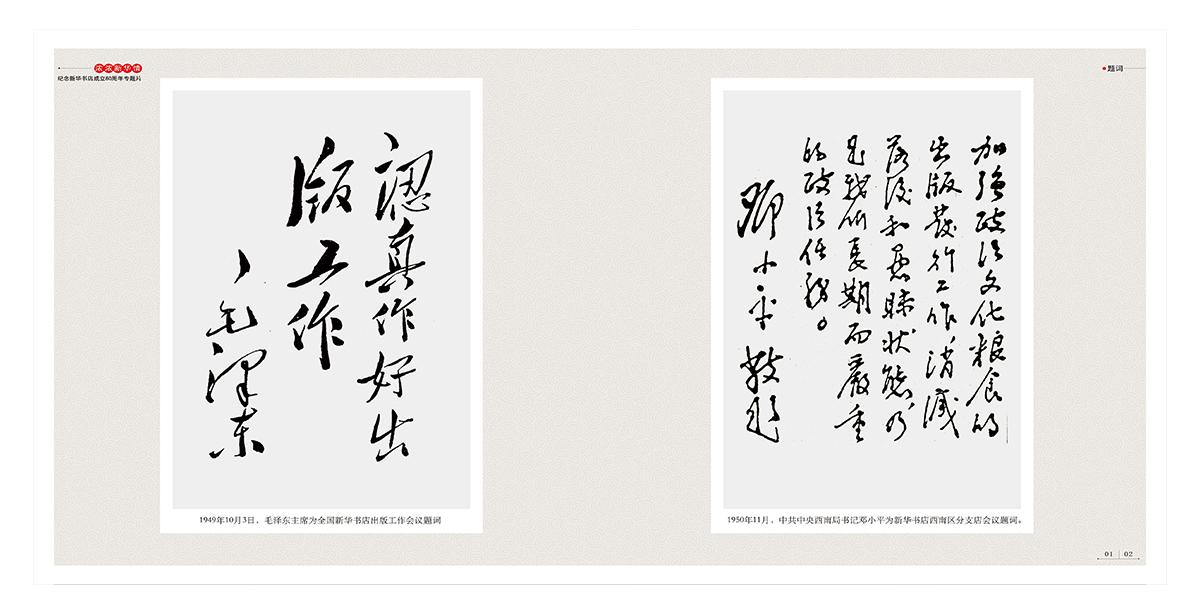 浓浓新华情
纪念新华书店成立80周年专题片
題词
認真作好出
版工作
毛澤东
1949年10月3日，毛泽东主席为全国新华书店出版工作会议题词
加强政治文化粮食的
出版發行工作，消滅
落後和愚昧状態，乃
是我们長期而嚴重
的政治任務。
鄧小平敬题
1950年11月，中共中央西南局书记邓小平为新华书店西南区分支店会议题词。
01 02